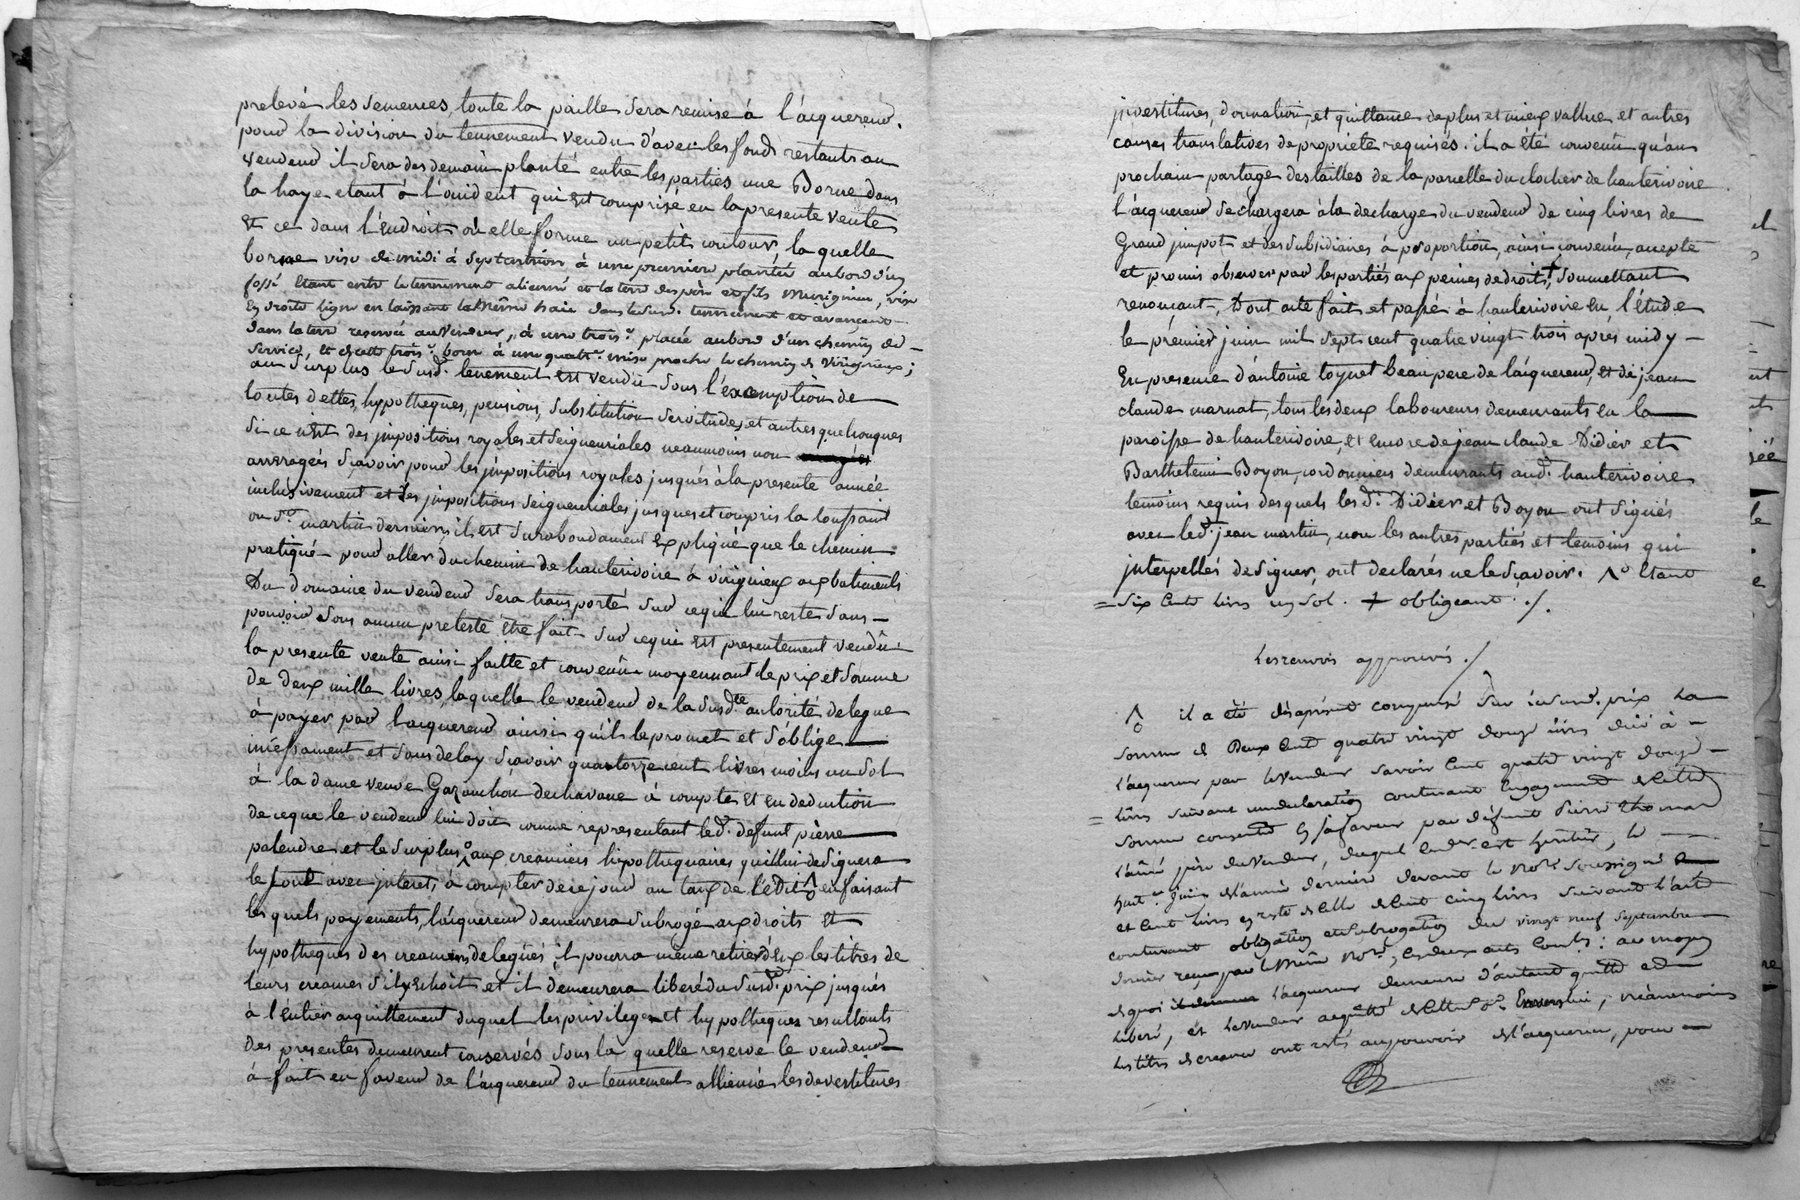 prelevé les semences, toute la paille sera remise à l'acquereur.
pour la division du tennement vendu d'avec les fonds restants au
vendeur il sera des demain planté entre les parties une Borne dans
la haye etant à l'occident qui est comprise en la presente vente
et ce dans l'endroit où elle forme un petit contour, la quelle
borne vise de midi à septentrion à une premiere plantée au bord d'un
fossé étant entre le tennement aliené et la terre des père et fils murigneux, vise
en droite ligne en laissant la même haie dans le susd. tennement et avançant
dans la terre reservée au vendeur, à une trois.e placée au bord d'un chemin de
service, et de cette trois.e borne à une quatr.e mise proche le chemin de virigneux;
au surplus le susd. tenement est vendu sous l'exemption de
toutes dettes, hypotheques, pensions, substitution servitudes, et autres quelconques
si ce n'est des impositions royales et seigneuriales neanmoins non
arreragées sçavoir pour les impositions royales jusqués à la presente année
inclusivement et les impositions seigneuriales jusques et compris la toussaint
ou s.t martin dernier, il est surabondament expliqué que le chemin
pratiqué pour aller du chemin de hauterivoire à virigneux aux batiments
Du domaine du vendeur sera transporté sur ce qui lui reste sans
pouvoir sous aucun preteste être fait sur ce qui est presentement vendû
la presente vente ainsi faitte et convenüe moyennant le prix et somme
de deux mille livres, laquelle le vendeur de la susd.te autorité delegue
à payer par l'acquereur ainsi qu'il le promet et s'oblige
incessament et sans delay sçavoir quatorze cent livres moins un sol
à la dame veuve Garanchon dechavane à compte et en deduction
de ce que le vendeur lui doit comme representant led. defunt pierre
palendre et le surplus aux creanciers hipothequaires qu'il lui designera
le tout avec interet, à compter de ce jour au taux de l'édit en faisant
les quels payements, l'acquereur demeurera subrogé aux droits et
hypotheques des creanciers delegués, il pourra même retirer d'eux les titres de
leurs creances s'il y echoit et il demeurera liberé du susd. prix jusqués
à l'entier acquittement duquel les privileges et hypotheques resultants
des presentes demeurent conservés sous la quelle reserve le vendeur
à fait en faveur de l'acquereur du tennement allienné les devestitures
investitures, donnation, et quittance de plus et mieux vallue et autres
causes translatives de proprieté requisés. il a été convenû qu'au
prochain partage des tailles de la parcelle du clocher de hauterivoire
l'acquereur se chargera à la decharge du vendeur de cinq livres de
Grand impot et des subsidiaires à proportion, ainsi convenu, accepté
et promis observer par les partiés aux peines de droits, + soumettant
renonçant. Dont acte fait et passé à hauterivoire en l'étude
le premier juin mil sept cent quatre vingt trois apres midy
En presence d'antoine toynet beaupere de l'acquereur, et de jean
claude marnat, tous les deux laboureurs demeurants en la
paroisse de hauterivoire, et encore de jean claude Didier et
Barthelemi Boyon, cordonniers demeurants aud. hauterivoire
temoins requis desquels les d. Didier et Boyon ont signés
avec led. jean martin, non les autres partiés et temoins qui
interpellés de signer, ont declarés ne le sçavoir. étant
= six cent livres un sol. + obligeant ./.
Les renvois approuvés ./
il a été à présent compensé sur le susd. prix la
somme de Deux cent quatre vingt douze livres duë à
l'acquereur par le vendeur savoir cent quatre vingt douze
= livres suivant une declaration contenant engagement de cette
somme consentie en sa faveur par défunt Pierre thomas
l'aîné père du vendeur, duquel ce dr. est heritier, le
huit.e juin de l'année dernière devant le not.re soussigné
et cent livres en reste de celle de cent cinq livres suivant l'acte
contenant obligation et subrogation du vingt neuf septembre
dernier reçu par le même not.re, les deux acts contr.; au moyen
de quoi l'acquereur demeure d'autant quitte et
liberé, et le vendeur acquitté de cette, néanmoins
les titres de creance ont resté au pouvoir de l'acquereur, pour